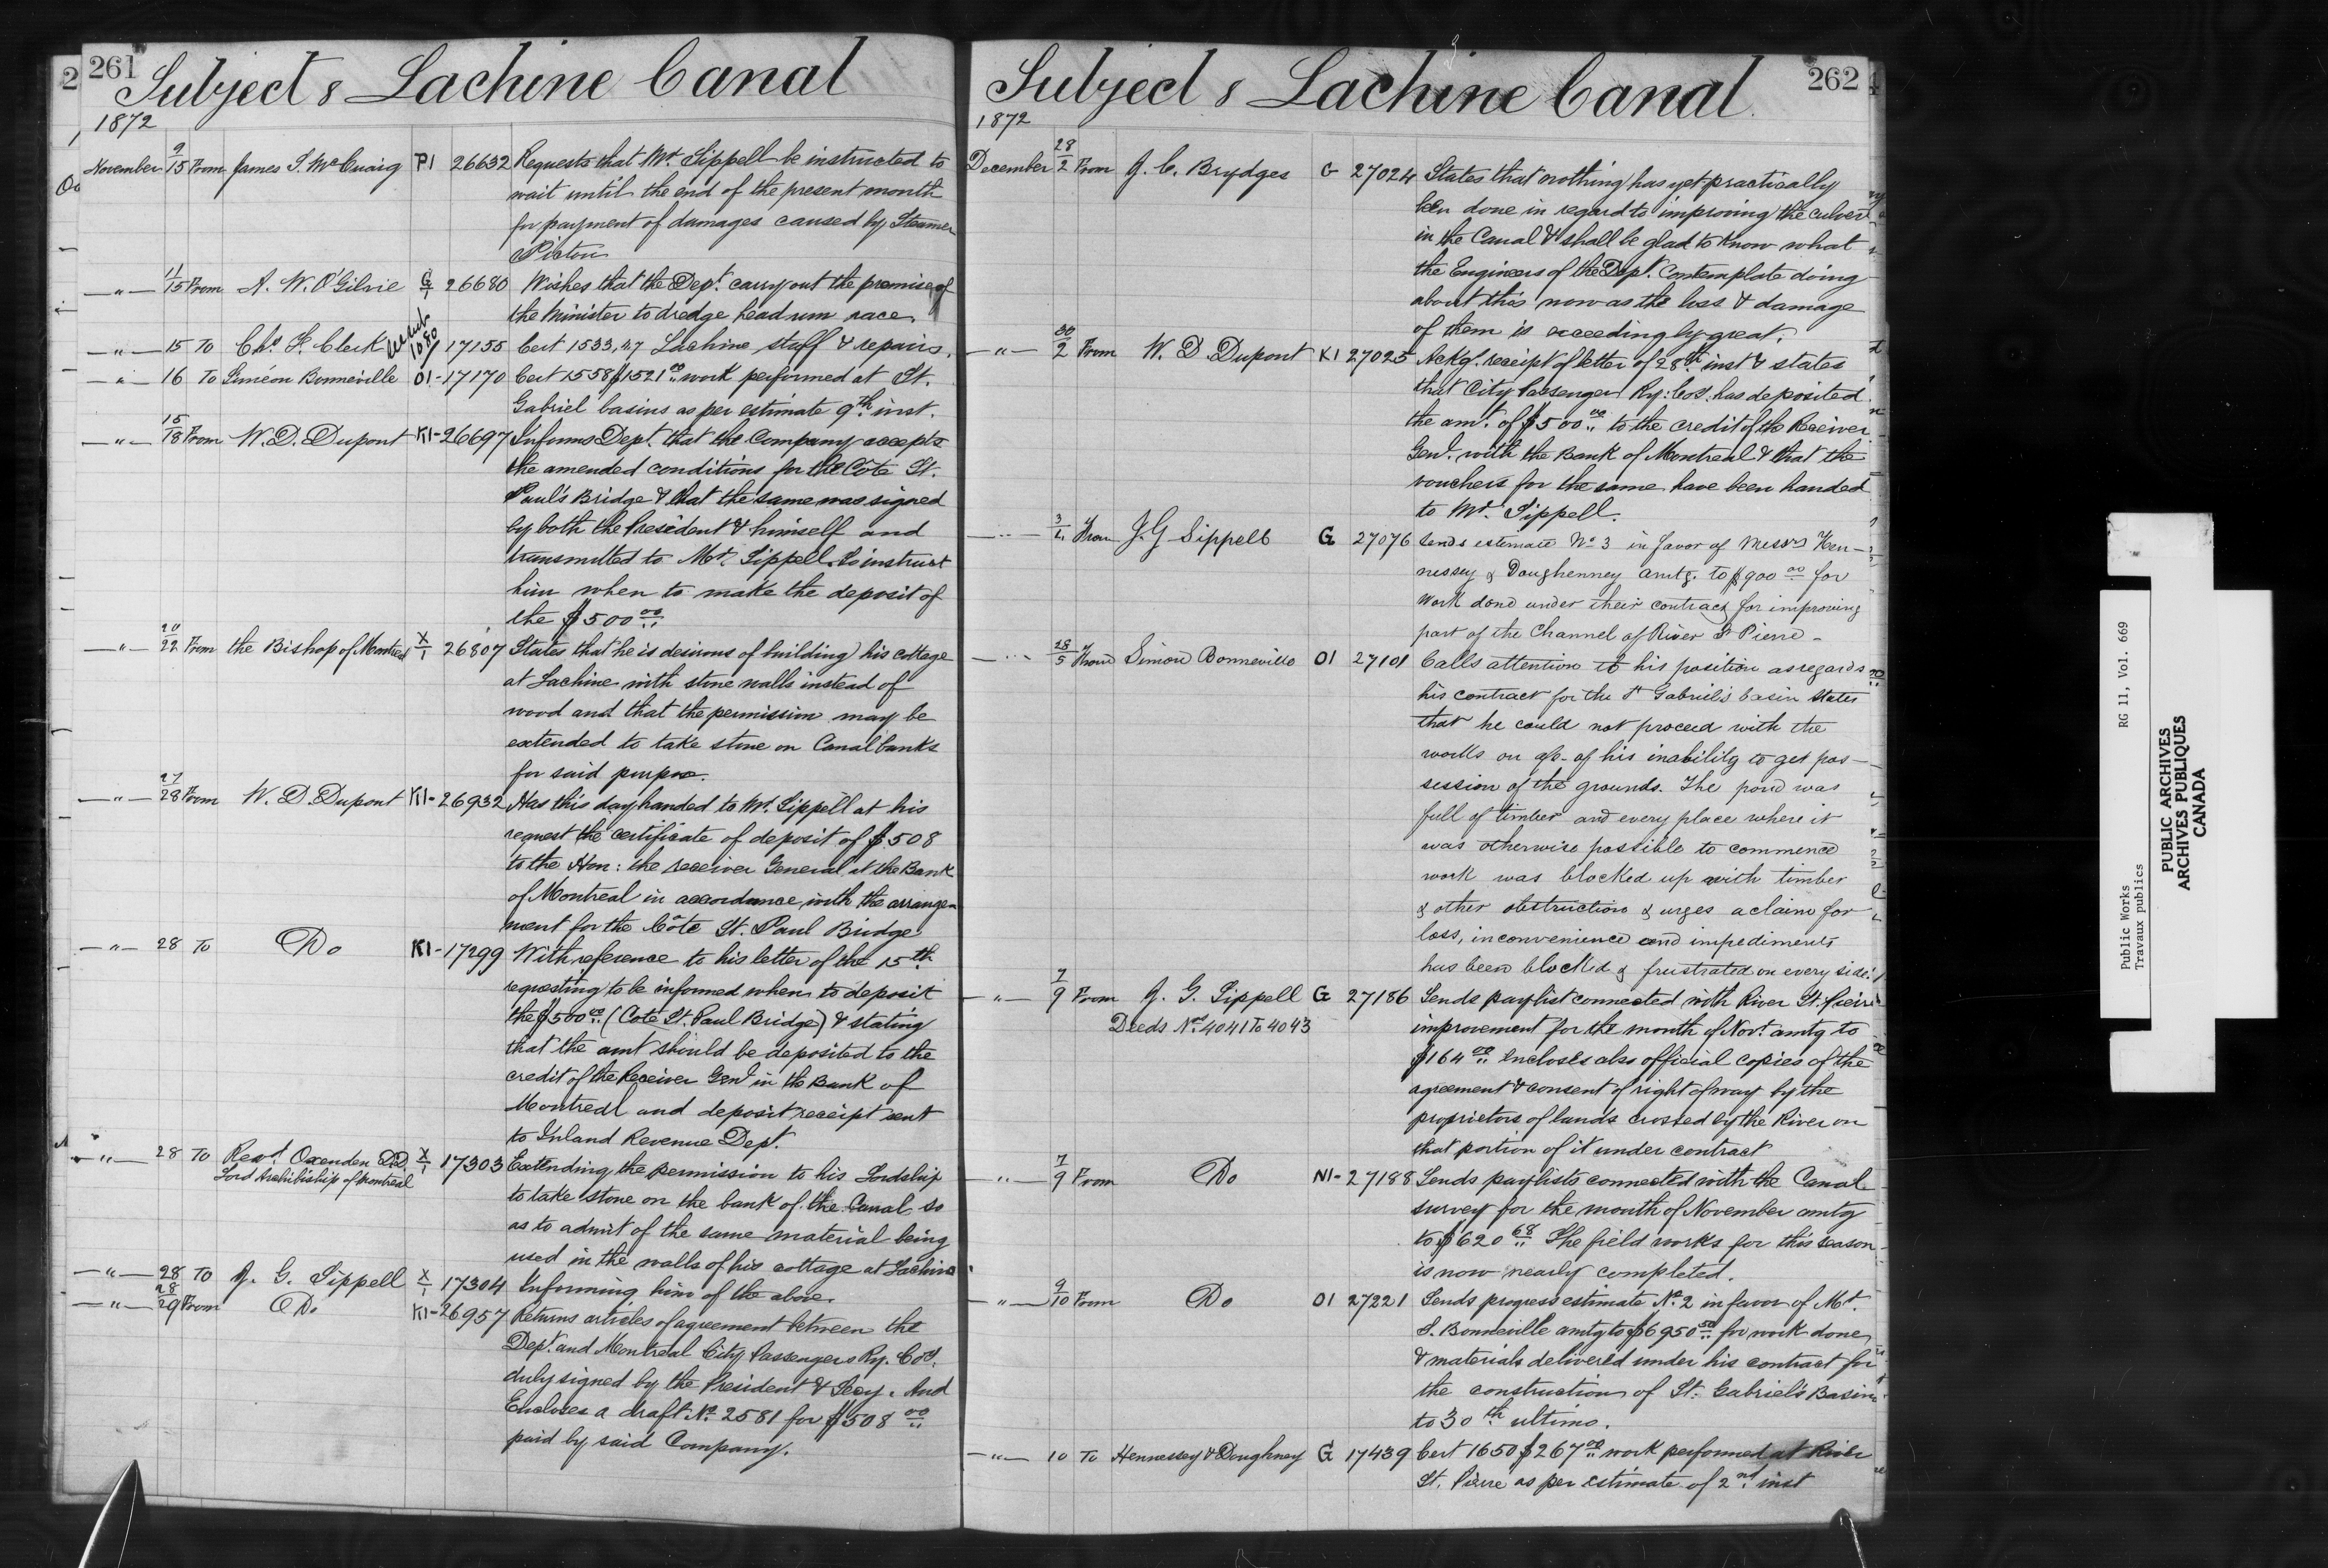 261
Subject s Lachine Canal
1872
November 9/15 From James S. McCuaig P1 26632 Requests that Mr. Sippell be instructed to
wait until the end of the present month
for payment of damages caused by Steamer
Picton
— " — 11/15 From A. W. O'Gilvie G/1 26680 Wishes that the Dept. carry out the promise of
the Minister to dredge head run race.
— " — 15 To Chs. F. Clerk 17155 Cert 1533,47 Lachine staff & repairs.
— " — 16 To Siméon Bonneville O1 - 17170 Cert 1558 $1521 00 work performed at St.
Gabriel basins as per estimate 9th inst.
— " — 15/18 From W. D. Dupont K1 - 26697 Informs Dept. that the Company accepts
the amended conditions for the Côte St.
Paul's Bridge & that the same was signed
by both the President & himself and
transmitted to Mr. Sippell. To instruct
him when to make the deposit of
the $500 00
— " — 20/22 From the Bishop of Montreal X/1 26807 States that he is desirous of building his cottage
at Lachine with stone walls instead of
wood and that the permission may be
extended to take stone on Canal banks
for said purpose.
— " — 27/28 From W. D. Dupont K1 - 26932 Has this day handed to Mr. Sippell at his
request the certificate of deposit of $508
to the Hon: the receiver General at the Bank
of Montreal in accordance with the arrange-
ment for the Côte St. Paul Bridge
— " — 28 To Do K1 - 17299 With reference to his letter of the 15th
requesting to be informed when to deposit
the $500 00 (Cote St. Paul Bridge) & stating
that the amt should be deposited to the
credit of the Receiver Genl in the Bank of
Montreal and deposit receipt sent
to Inland Revenue Dept.
— " — 28 To Revd. Oxenden D.D. X/1 17303 Extending the permission to his Lordship
Lord Archibiship of Montreal
to take stone on the bank of the Canal so
as to admit of the same material being
used in the walls of his cottage at Lachine
— " — 28 To J. G. Sippell X/1 17304 Informing him of the above.
— " — 28/29 From Do K1 - 26957 Returns articles of agreement between the
Dept. and Montreal City Passengers Ry. Coy.
duly signed by the President & Secy. And
Encloses a draft No. 2581 for $508 00
paid by said Company.
262
Subject s Lachine Canal
1872
December 28/2 From J. C. Brydges G 27024 States that nothing has yet practically
been done in regard to improving the culvert
in the Canal & shall be glad to know what
the Engineers of the Dept. Contemplate doing
about this now as the loss & damage
of them is exceedingly great.
— " — 30/2 From W. D. Dupont K1 27025 Ackg. receipt of letter of 28th inst & states
that City Passenger Ry: Coy. has deposited
the amt. of $500 00 to the credit of the Receiver
Genl. with the Bank of Montreal & that the
vouchers for the same have been handed
to Mr. Sippell.
— " — 3/4 From J. G Sippell G 27076 Sends estimate No 3 in favor of Messrs Hen-
nessey & Doughenney amtg. to $900 00 for
work done under their contract for improving
part of the Channel of River St Pierre -
— " — 28/5 From Simon Bonneville O1 27101 Calls attention to his position as regards
his contract for the St Gabriel's basin States
that he could not proceed with the
works on a/c of his inability to get pos-
session of the grounds. The pond was
full of timber and every place where it
was otherwise possible to commence
work was blocked up with timber
& other obstruction & urges a claim for
loss, inconvenience and impediments
has been blocked & frustrated on every side.
— " — 7/9 From J. G. Sippell G 27186 Sends paylist connected with River St. Pierre
Deeds Nos. 4041 To 4043
improvement for the month of Novr. amtg to
$164 00 encloses also official copies of the
agreement & consent of right of way by the
proprietors of lands crossed by the River on
that portion of it under contract
— " — 7/9 From Do N1 - 27188 Sends paylists connected with the Canal
survey for the month of November amtg
to $620 68 The field works for this season
is now nearly completed.
— " — 9/10 From Do O1 27221 Sends progress estimate No. 2 in favor of Mr.
S. Bonneville amtg to $6950 50 for work done
& materials delivered under his contract for
the construction of St. Gabriel's Basin
to 30th ultimo.
— " — 10 To Hennessey & Doughney G 17439 Cert 1650 $267 00 work performed at River
St. Pierre as per estimate of 2nd inst
Public Works RG 11, Vol. 669
Travaux publics
PUBLIC ARCHIVES
ARCHIVES PUBLIQUES
CANADA